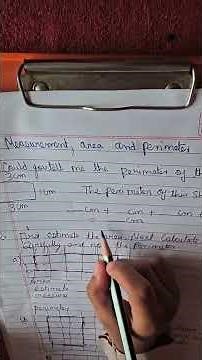 Measurement, area and perimeter
Could you tell me the perimeter of th
3cm
1cm The perimeter of this Sh
3cm cm + cm + cm
cm
First estimate the area. Next calculate
carefully and the perimeter.
a)
Area
estimate
measure
perimeter